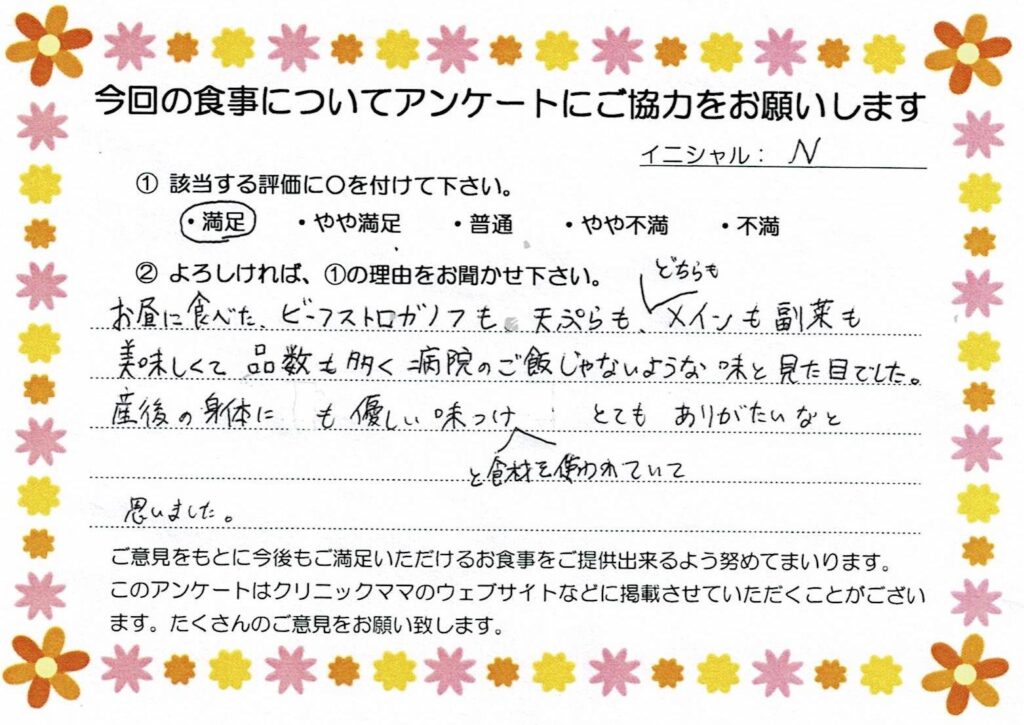 今回の食事についてアンケートにご協力をお願いします
イニシャル： N
① 該当する評価に〇を付けて下さい。
・満足 ・やや満足 ・普通 ・やや不満 ・不満
② よろしければ、①の理由をお聞かせ下さい。
どちらも
お昼に食べた、ビーフストロガノフも、天ぷらも、メインも副菜も
美味しくて品数も多く病院のご飯じゃないような味と見た目でした。
産後の身体にも優しい味つけ とてもありがたいなと
と食材を使われていて
思いました。
ご意見をもとに今後もご満足いただけるお食事をご提供出来るよう努めてまいります。
このアンケートはクリニックママのウェブサイトなどに掲載させていただくことがござい
ます。たくさんのご意見をお願い致します。